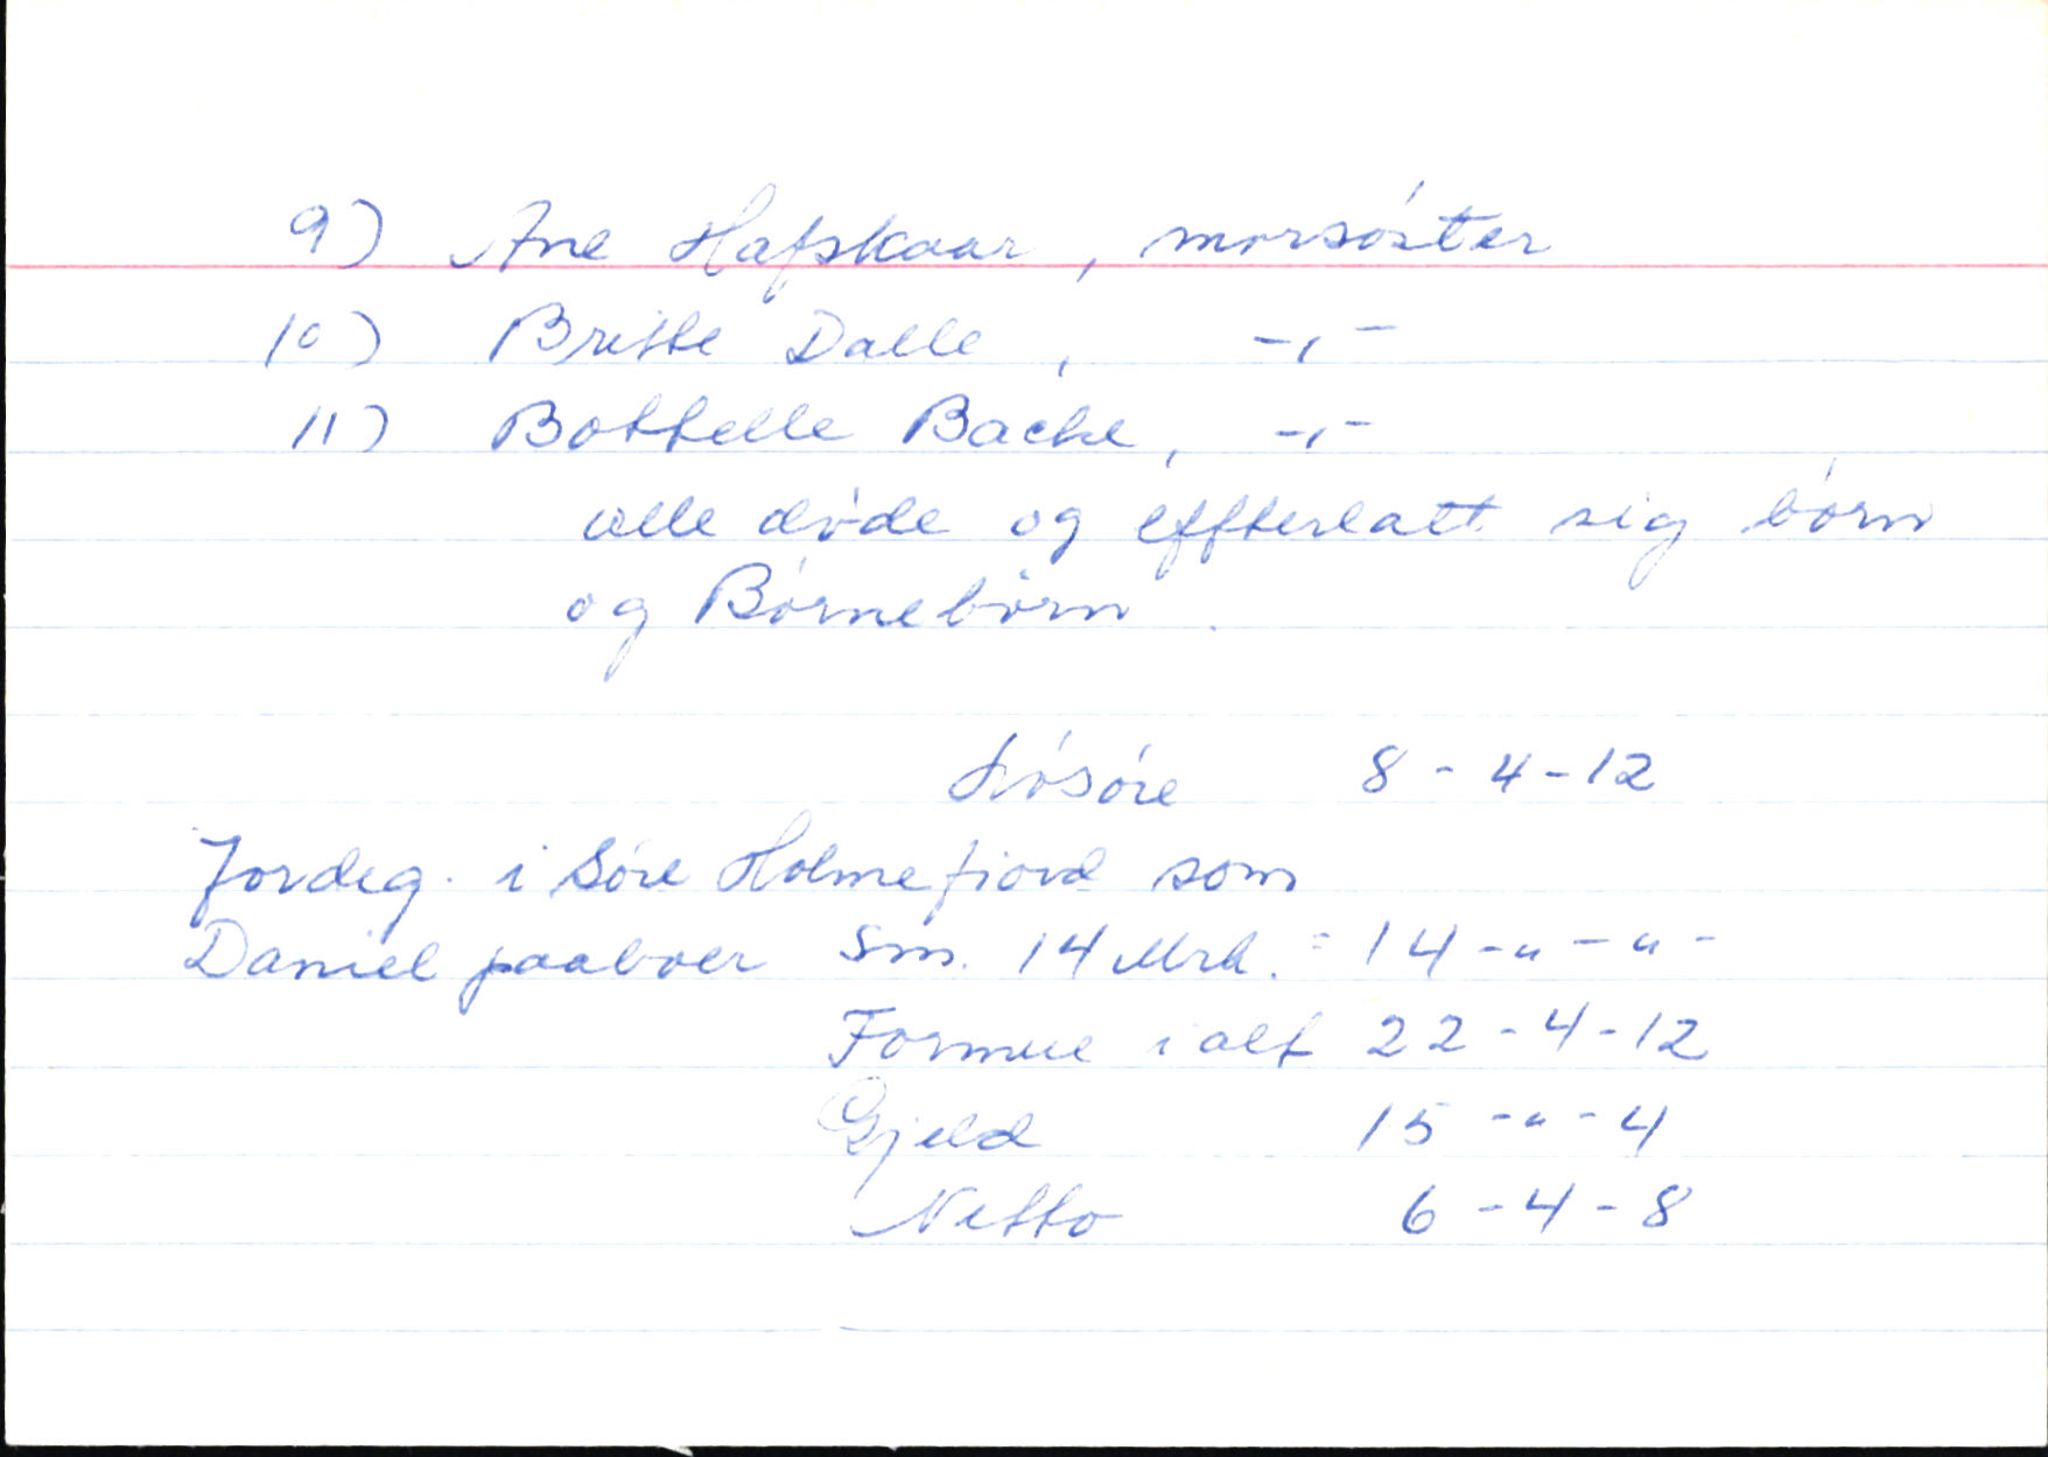 9) Ane Hafskaar, morsöster
10) Britte Dalle, -,-
11) Bottelle Backe, -,-
alle døde og effterlatt sig börn
og Börnebörn.
Lösöre 8 - 4 - 12
Jordeg. i Söre Holmefiord som
Daniel paaboer Sm. 14 Mrk. = 14 - " - " -
Formue i alt 22 - 4 - 12
Gjeld 15 - " - 4
Netto 6 - 4 - 8